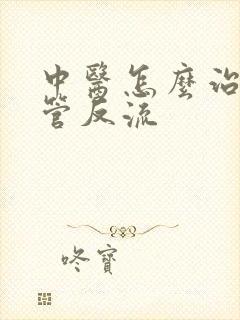 中醫怎麼治
管反流
咚寶